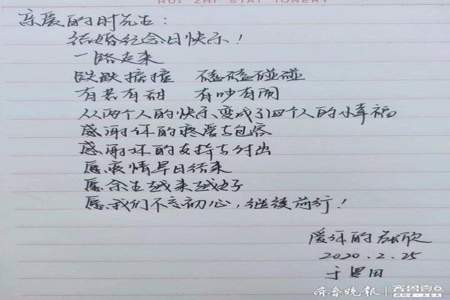 亲爱的时先生：
结婚纪念日快乐！
一路走来
跌跌撞撞 磕磕碰碰
有苦有甜 有吵有闹
从两个人的快乐变成了四个人的小幸福
感谢你的疼爱与包容
感谢你的支持与付出
愿疫情早日结束
愿余生越来越好
愿我们不忘初心，继续前行！
爱你的 欣
2020.2.25
于
齐鲁晚报